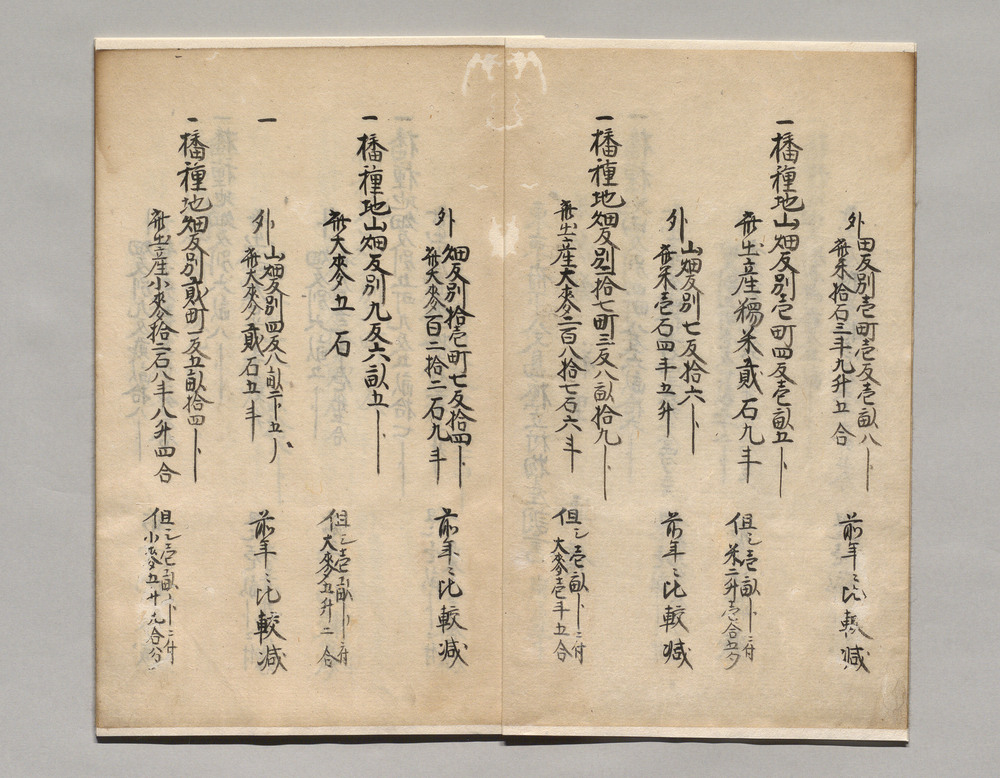 外 田反別壱町壱反壱畝八卜
此米拾石三斗九升五合
前年ニ比較減
一播種地山畑反別壱町四反壱畝五卜
此出産糯米貳石九斗
但シ壱畝卜ニ付
米二升壱合五夕
外 山畑反別七反拾六卜
此米壱石四斗五升
前年ニ比較減
一播種地畑反別二拾七町三反八畝拾九卜
此出産大麥二百八拾七石六斗
但シ壱畝卜ニ付
大麥壱斗五合
外 畑反別拾壱町七反拾四卜
此大麥百二拾二石九斗
前年ニ比較減
一播種地山畑反別九反六畝五卜
此大麥五石
但シ壱畝卜ニ付
大麥五升二合
一
外 山畑反別四反八畝二十五卜
此大麥貳石五斗
前年ニ比較減
一播種地畑反別貳町一反五畝拾四卜
此出産小麥拾二石八斗八升四合
但シ壱畝卜ニ付
小麥五升九合